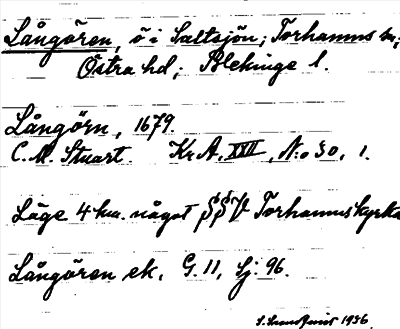 Långören, ö i Saltsjön; Torhamns sn;
Östra hd; Blekinge l.
Långörn, 1679.
C. M. Stuart. Kr. A. XXII, N:o 30, 1.
Läge 4 km. något SSV Torhamns kyrka
Långören ek. G. 11, Sj: 96.
S. Sundquist 1936